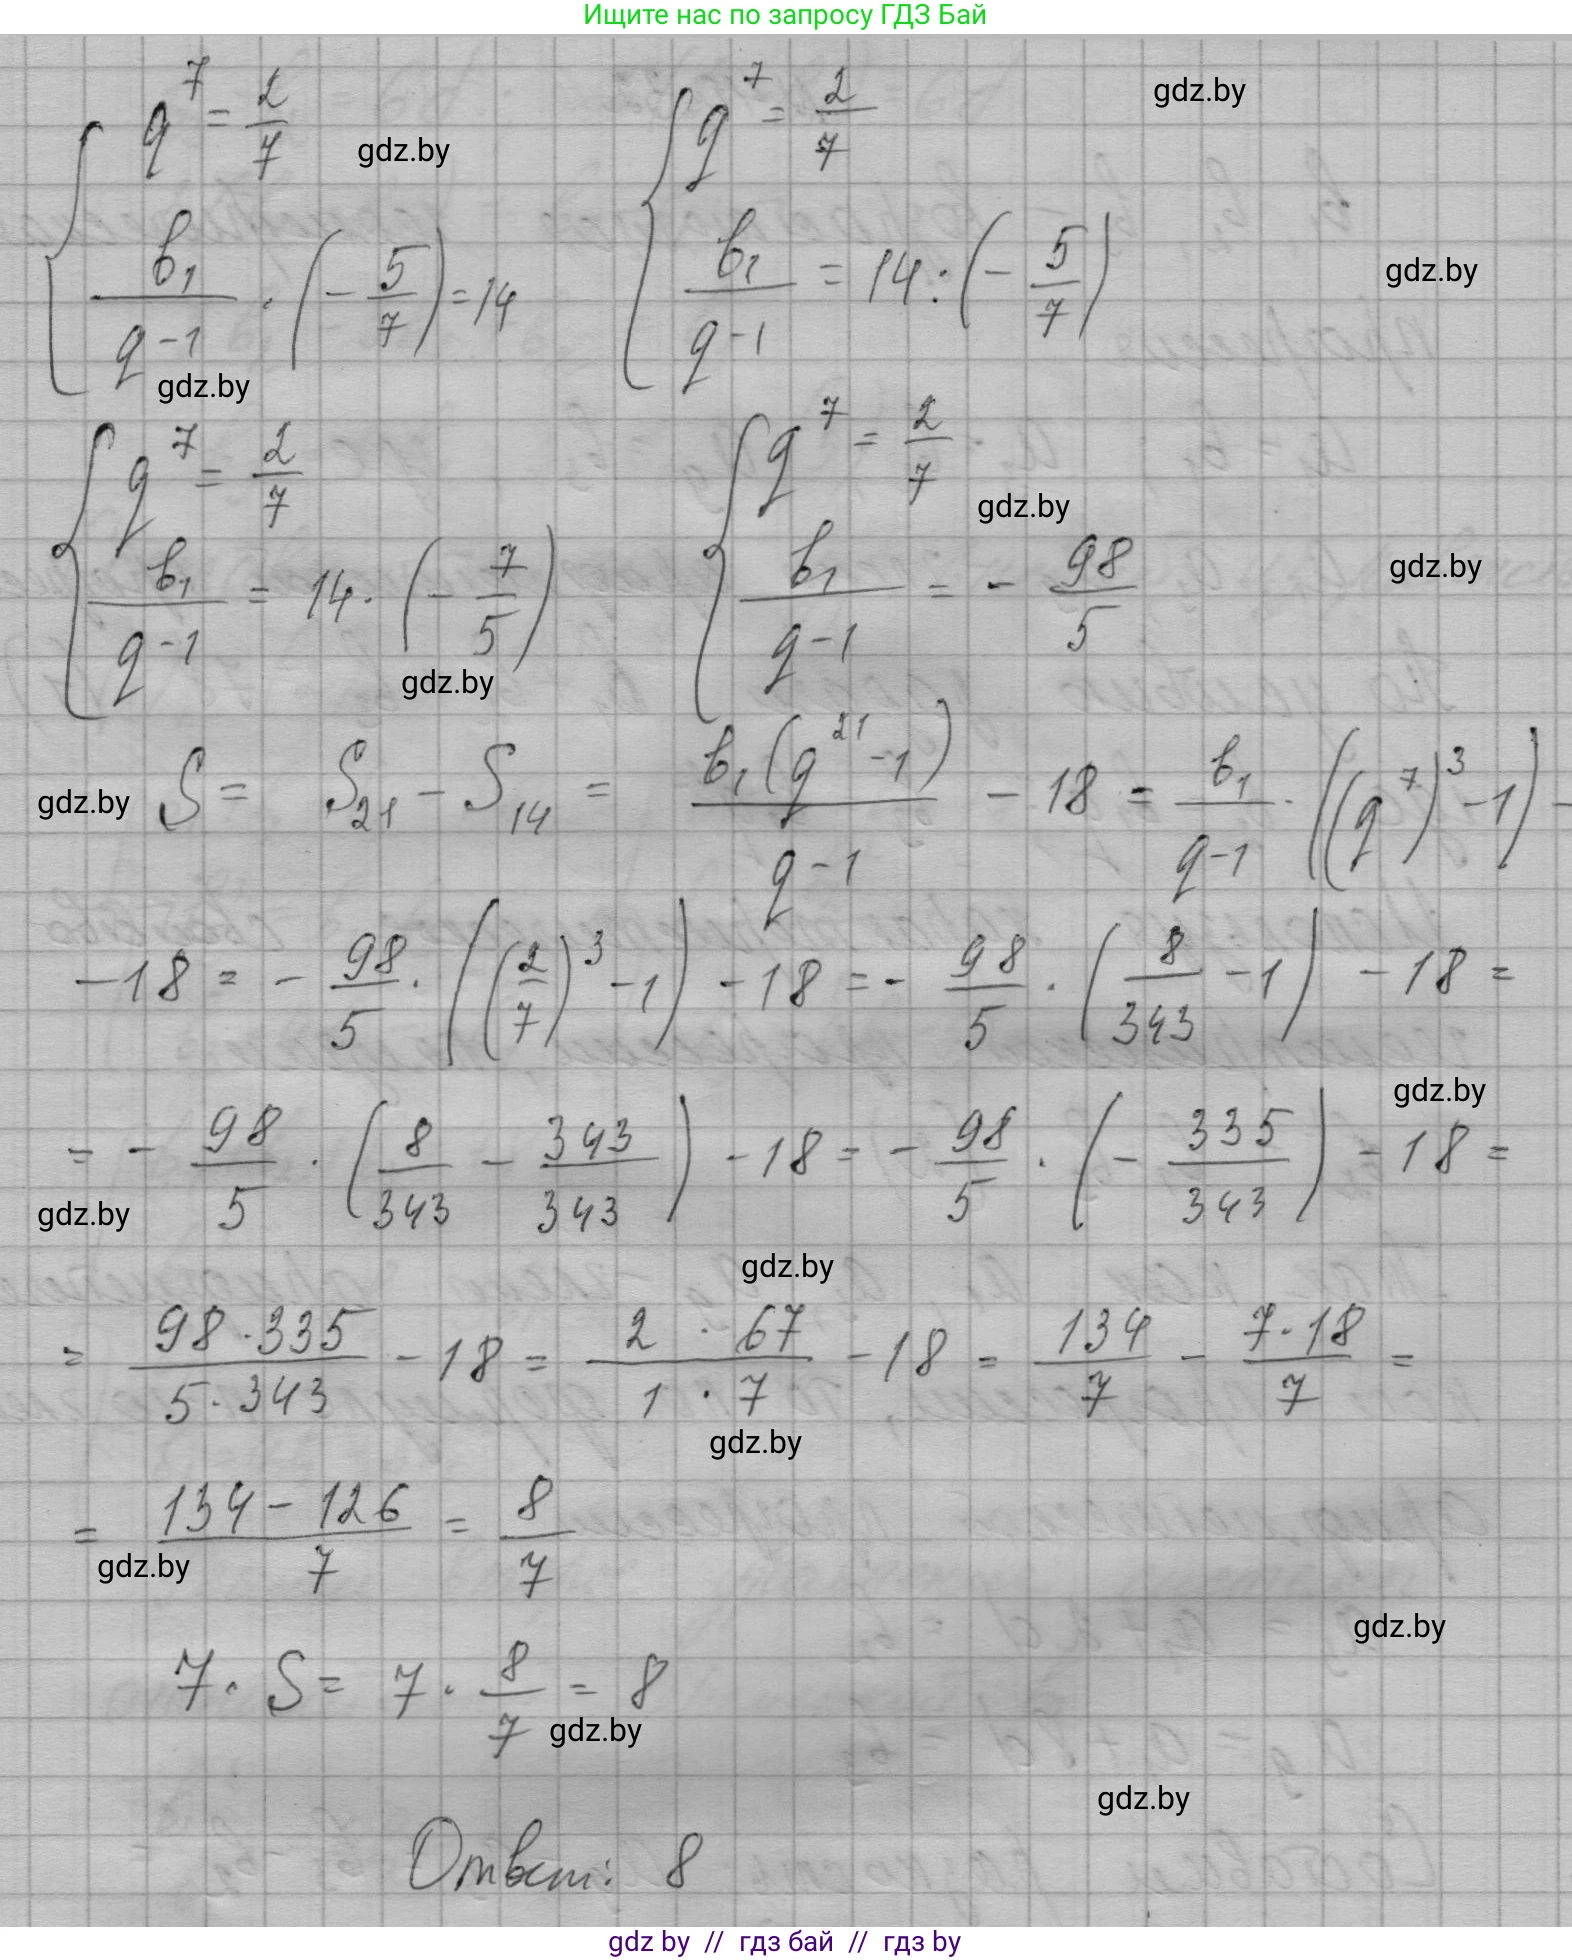 Ищите нас по запросу ГДЗ Бай
gdz.by
q^7 = 2/7
q^7 = 2/7
gdz.by
b₁/(q-1) · (-5/7) = 14
b₁/(q-1) = 14 : (-5/7)
gdz.by
gdz.by
q^7 = 2/7
q^7 = 2/7
gdz.by
b₁/(q-1) = 14 · (-7/5)
b₁/(q-1) = - 98/5
gdz.by
gdz.by
gdz.by
S = S₂₁ - S₁₄ = b₁(q^21 - 1)/(q-1) - 18 = b₁/(q-1) · ((q^7)^3 - 1) -
-18 = - 98/5 · ((2/7)^3 - 1) - 18 = - 98/5 · (8/343 - 1) - 18 =
gdz.by
= - 98/5 · (8/343 - 343/343) - 18 = - 98/5 · (- 335/343) - 18 =
gdz.by
gdz.by
= 98·335/5·343 - 18 = 2 · 67/1 · 7 - 18 = 134/7 - 7·18/7 =
gdz.by
= 134 - 126/7 = 8/7
gdz.by
gdz.by
7 · S = 7 · 8/7 = 8
gdz.by
gdz.by
Ответ: 8
gdz by // гдз бай // гдз by